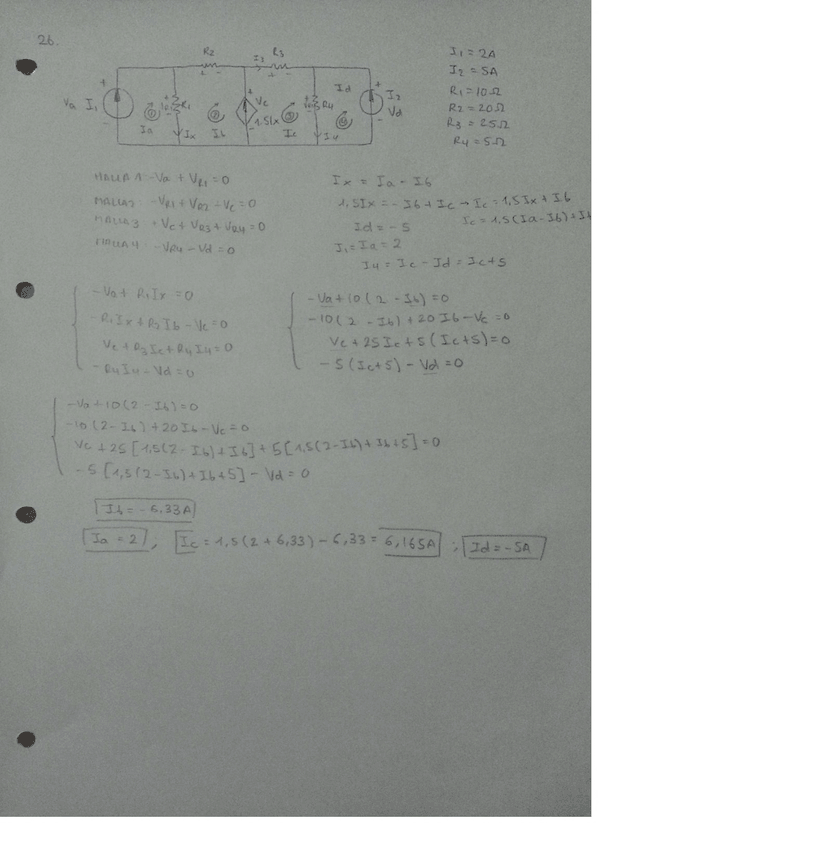 26.
R2 I3 R3
I1 = 2A
I2 = 5A
R1 = 10Ω
R2 = 20Ω
R3 = 25Ω
R4 = 5Ω
Va I1 R1 Vc R4 Id I2
Ia Ix Ib 1.5Ix Ic I4 Vd
MALLA 1: -Va + VR1 = 0
MALLA 2: -VR1 + VR2 - Vc = 0
MALLA 3 + Vc + VR3 + VR4 = 0
MALLA 4 - VR4 - Vd = 0
Ix = Ia - Ib
1,5Ix = - Ib + Ic → Ic = 1,5Ix + Ib
Id = - 5 Ic = 1,5(Ia-Ib)+Ib
I1 = Ia = 2
I4 = Ic - Id = Ic + 5
-Va + R1Ix = 0
-R1Ix + R2Ib - Vc = 0
Vc + R3Ic + R4I4 = 0
-R4I4 - Vd = 0
-Va + 10(2 - Ib) = 0
-10(2 - Ib) + 20Ib - Vc = 0
Vc + 25Ic + 5(Ic+5) = 0
-5(Ic+5) - Vd = 0
-Va + 10(2 - Ib) = 0
-10(2 - Ib) + 20Ib - Vc = 0
Vc + 25[1,5(2 - Ib) + Ib] + 5[1,5(2-Ib) + Ib+5] = 0
-5[1,5(2-Ib) + Ib + 5] - Vd = 0
Ib = -6,33A
Ia = 2, Ic = 1,5(2 + 6,33) - 6,33 = 6,165A ; Id = -5A